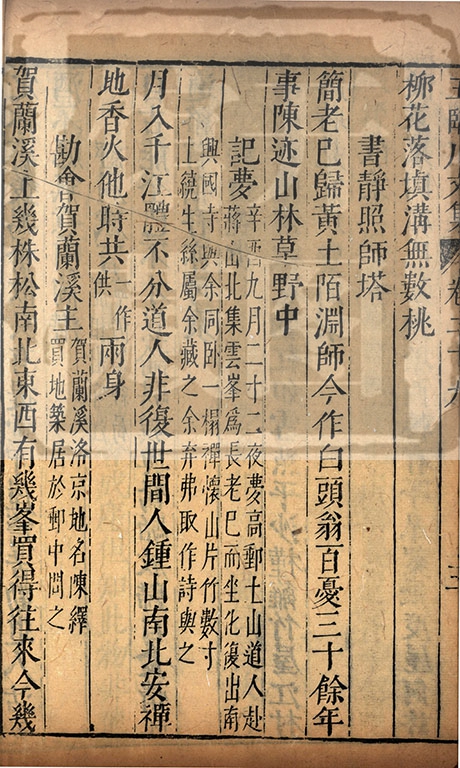 王臨川文集 卷三十九
柳花落填溝無數桃
書靜照師塔
簡老已歸黃土陌淵師今作白頭翁百憂三十餘年
事陳迹山林草野中
記夢 辛酉九月二十二夜夢高郵土山道人赴
蔣山北集雲峯爲長老已而坐化復出南
興國寺與余同臥一榻禪懷山片竹數寸
上繞生絲屬余藏之余弃弗取作詩與之
月入千江體不分道人非復世間人鍾山南北安禪
地香火他時共一作供兩身
勘會賀蘭溪主 賀蘭溪洛京地名陳繹
買地築居於郵中問之
賀蘭溪上幾株松南北東西有幾峯買得往來今幾